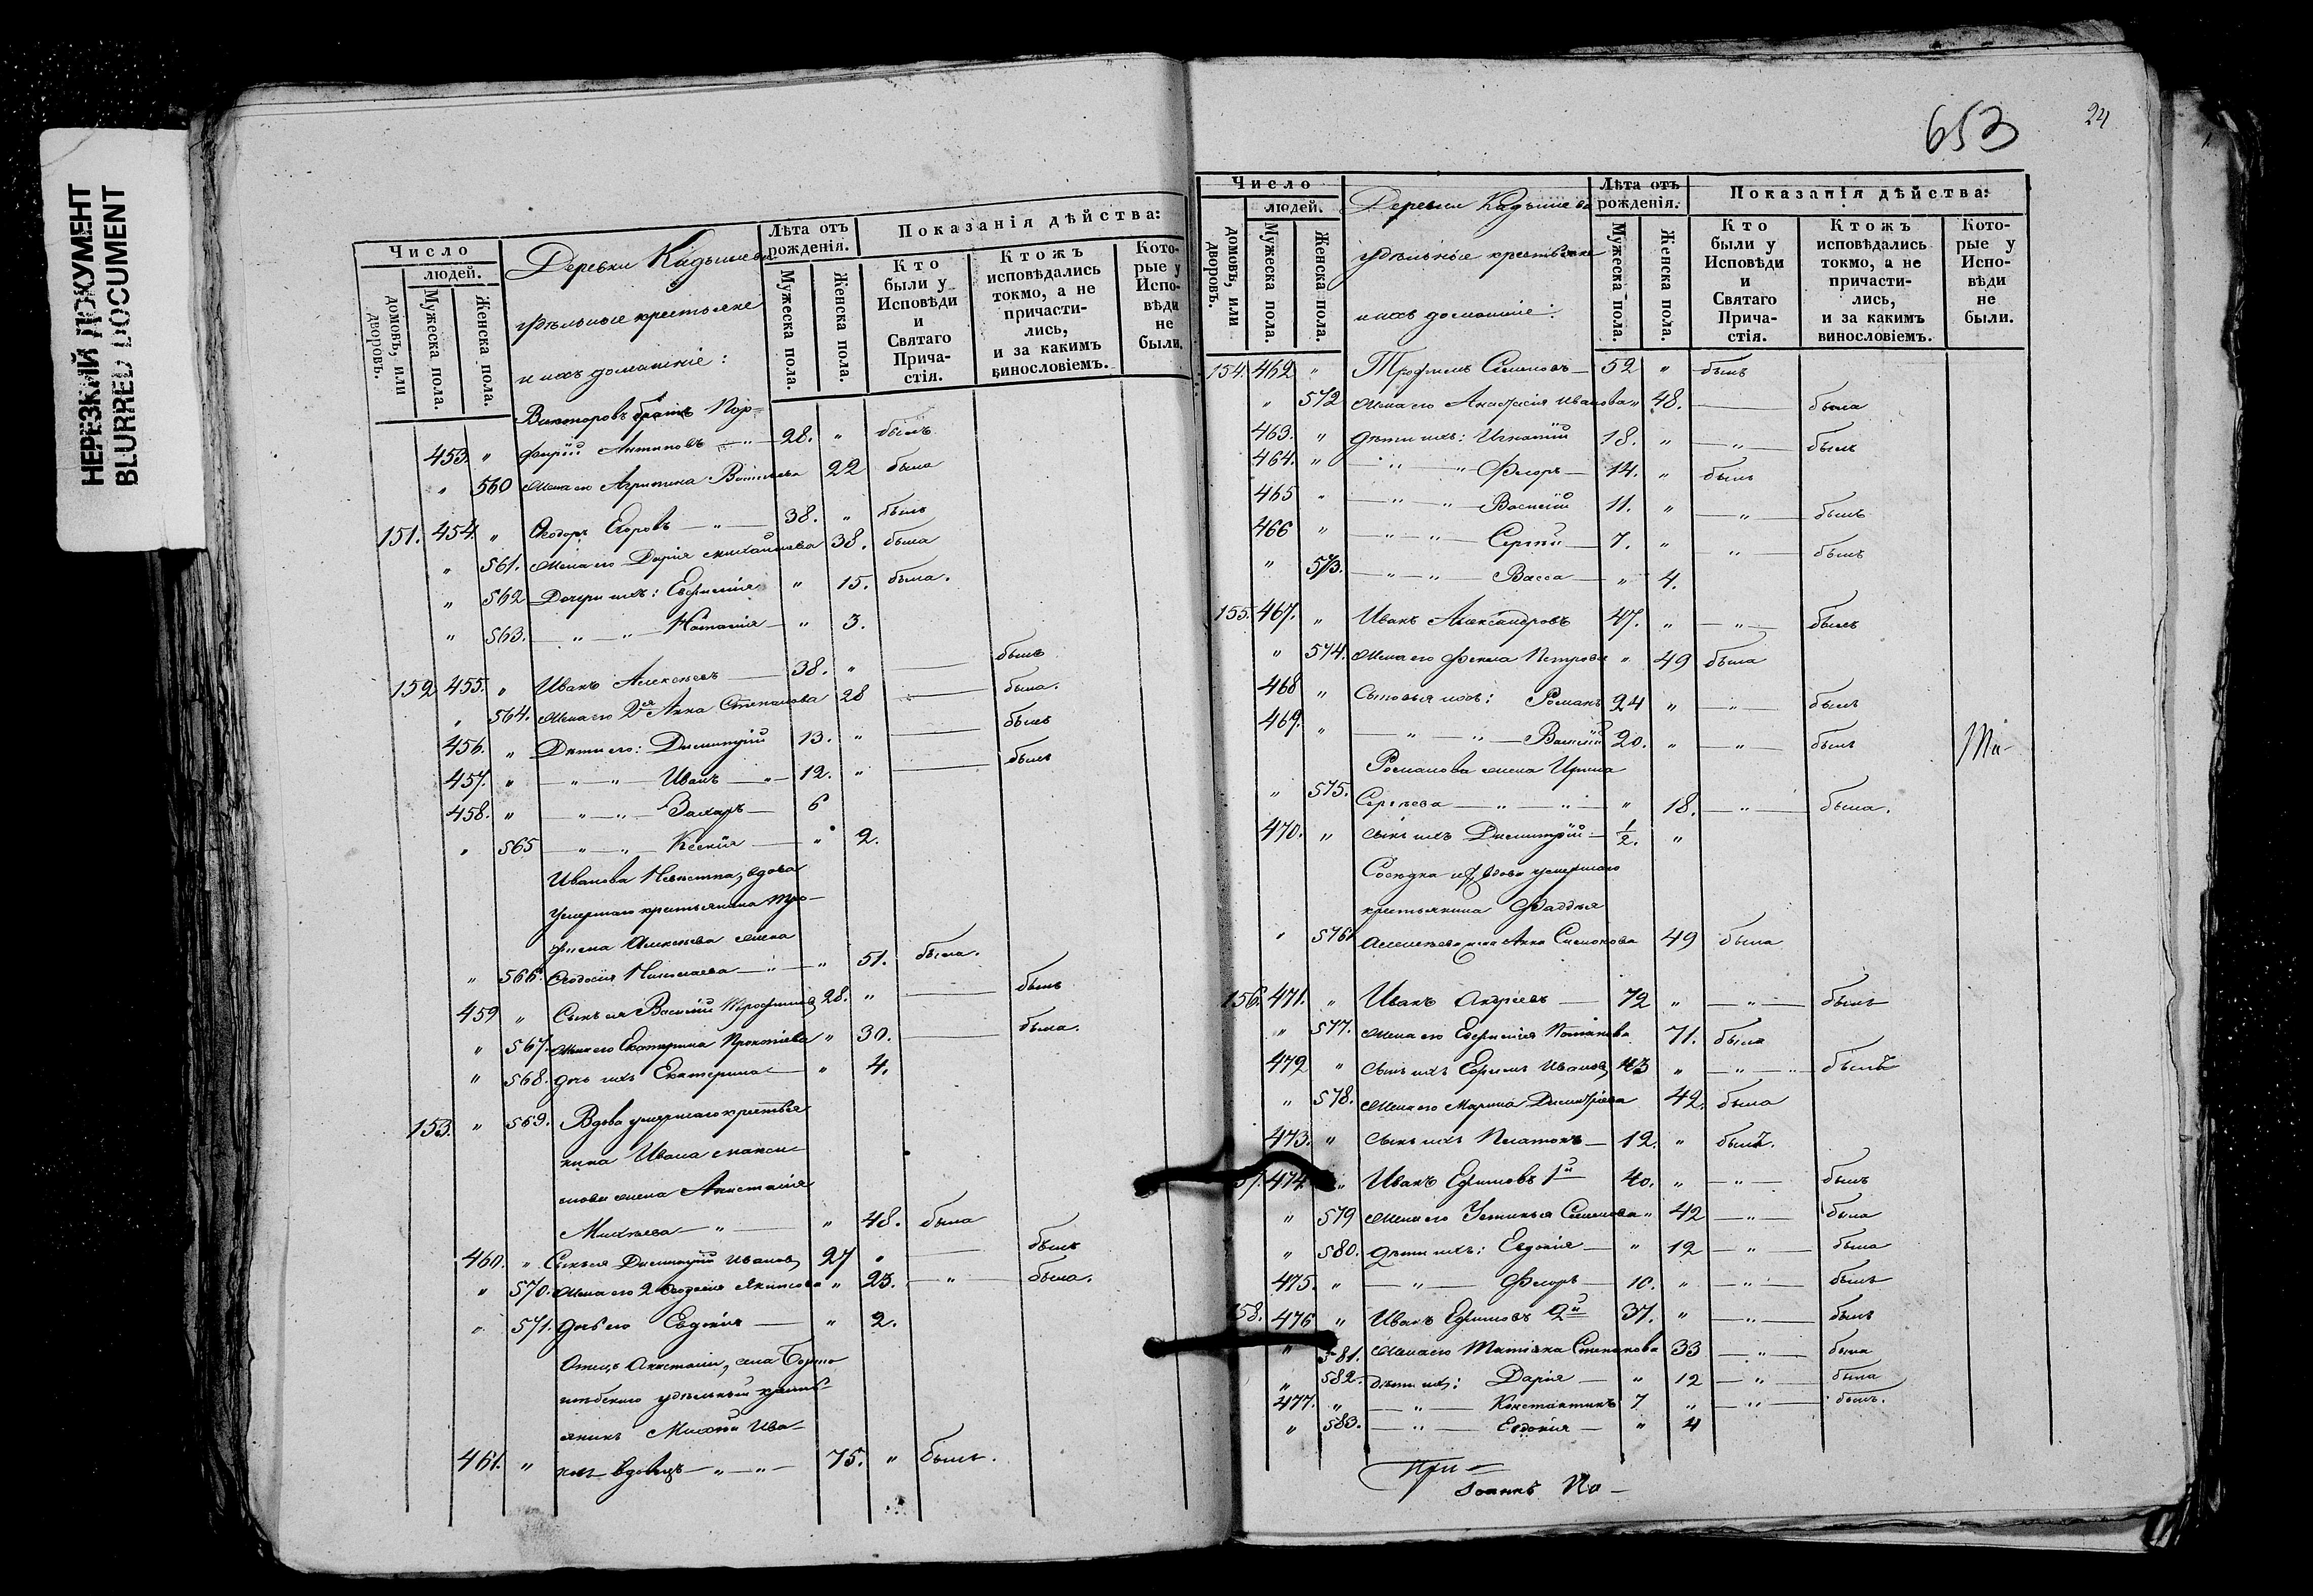 НЕРЕЗКИЙ ДОКУМЕНТ
BLURRED DOCUMENT
Число
людей.
домовъ, или дворовъ.
Мужеска пола.
Женска пола.
Деревни Кадышева
удѣльные крестьяне
и ихъ домашніе:
Лѣта отъ рожденія.
Мужеска пола.
Женска пола.
Показанія дѣйства:
Кто были у Исповѣди и Святаго Прича-стія.
Ктожъ исповѣдались токмо, а не причасти-лись, и за какимъ винословіемъ.
Кото-рые у Испо-вѣди не были.
Викторовъ братъ Пор=
453. " фирій Антиповъ — " — 28. " былъ
" 560 жена его Агрипина Васильева 22 была
151. 454. " Ѳеодоръ Егоровъ — " — 38. " былъ
" 561. жена его Дарія Михайлова 38. была
" 562 Дочери ихъ: Евфимія " 15. была.
" 563. — " — " — Наталія — " 3.
152. 455. " Иванъ Алексѣевъ — 38. " — былъ
" 564. жена его 2я Анна Степанова 28 — была.
456. " Дѣти его: Димитрій 13. " — былъ
457. " — " — " — Иванъ — " — 12. " — былъ
458. " — " — " — Захаръ — 6
" 565 — " — " — Ксенія — " 2.
Иванова Невѣстка, вдова
умершаго крестьянина Тро—
фима Алексѣева жена
" 566. Ѳеодосія Николаева — " — " 51. была.
459 " Сынъ ея Василій Трофимовъ 28. " — былъ
" 567. жена его Екатерина Прокопіева " 30. — была.
" 568. дочь ихъ Екатерина — " 4.
153. " 569. Вдова умершаго крестья
нина Ивана Макси=
мова жена Анастасія
Михѣева — " — " 48. была
460. " Сынъ ея Димитрій Ивановъ 27 " — былъ
" 570. жена его 2 Ѳеодосія Якимова " 23. — " — была.
" 571. дочь его Евдокія — " 2.
Отецъ Анастасіи, села
удѣльный кресть=
янинъ Михей Ива—
461. " новъ вдовецъ — " — " — 75. " былъ.
653
24
Число
людей.
домовъ, или дворовъ.
Мужеска пола.
Женска пола.
Деревни Кадышева
удѣльные крестьяне
и ихъ домашніе:
Лѣта отъ рожденія.
Мужеска пола.
Женска пола.
Показанія дѣйства:
Кто были у Исповѣди и Святаго Прича-стія.
Ктожъ исповѣдались токмо, а не причасти-лись, и за какимъ винословіемъ.
Кото-рые у Испо-вѣди не были.
154. 462 " Трофимъ Семеновъ — 52 " былъ
" 572 жена его Анастасія Иванова " 48. — была
463. " Дѣти ихъ: Игнатій 18. " — " — былъ
464. " — " — " Флоръ — 14. " былъ
465 " — " — " — Василій 11. " — " — былъ
466 " — " — " — Сергѣй — 7. " — " — былъ
" 573. — " — " — Васса — " 4.
155. 467. " Иванъ Александровъ 47. " — " — былъ
" 574. жена его Фекла Петрова " 49 была
468 " Сыновья ихъ: Романъ 24 " — " — былъ
469. " — " — " — Василій 20. " — " — былъ
Романова жена Ирина
" 575. Сергѣева — " — " — " 18. — " — была.
470. " сынъ ихъ Димитрій — 1/2. "
Сосѣдка ихъ, вдова умершаго
крестьянина Фаддея
" 576. Алексѣева жена Анна Симонова 49 была
156. 471. " Иванъ Андреевъ — 72 " — " — былъ
" 577. жена его Евфимія Потапова 71. была
472 " сынъ ихъ Ефимъ Ивановъ 43 " — " — былъ
" 578. жена его Марина Димитріева 42. была
473. " сынъ ихъ Платонъ — 12. " былъ.
57. 474. " Иванъ Ефимовъ 1й — 40. " — " — былъ
" 579 жена его Устинья Семенова " 42 — " — была
" 580. дѣти ихъ: Евдокія — " 12 — " — была
475. " — " — Флоръ — 10. " — " — былъ
158. 476 " Иванъ Ефимовъ 2й 37. " — " — былъ
" 581. жена его Татіана Степанова 33 — " — была
" 582. дѣти ихъ: Дарія — " 12 — " — была
477. " — " — Константинъ 7 " — " — былъ.
" 583. — " — Евдокія — " 4
При—
Іоаннъ По—